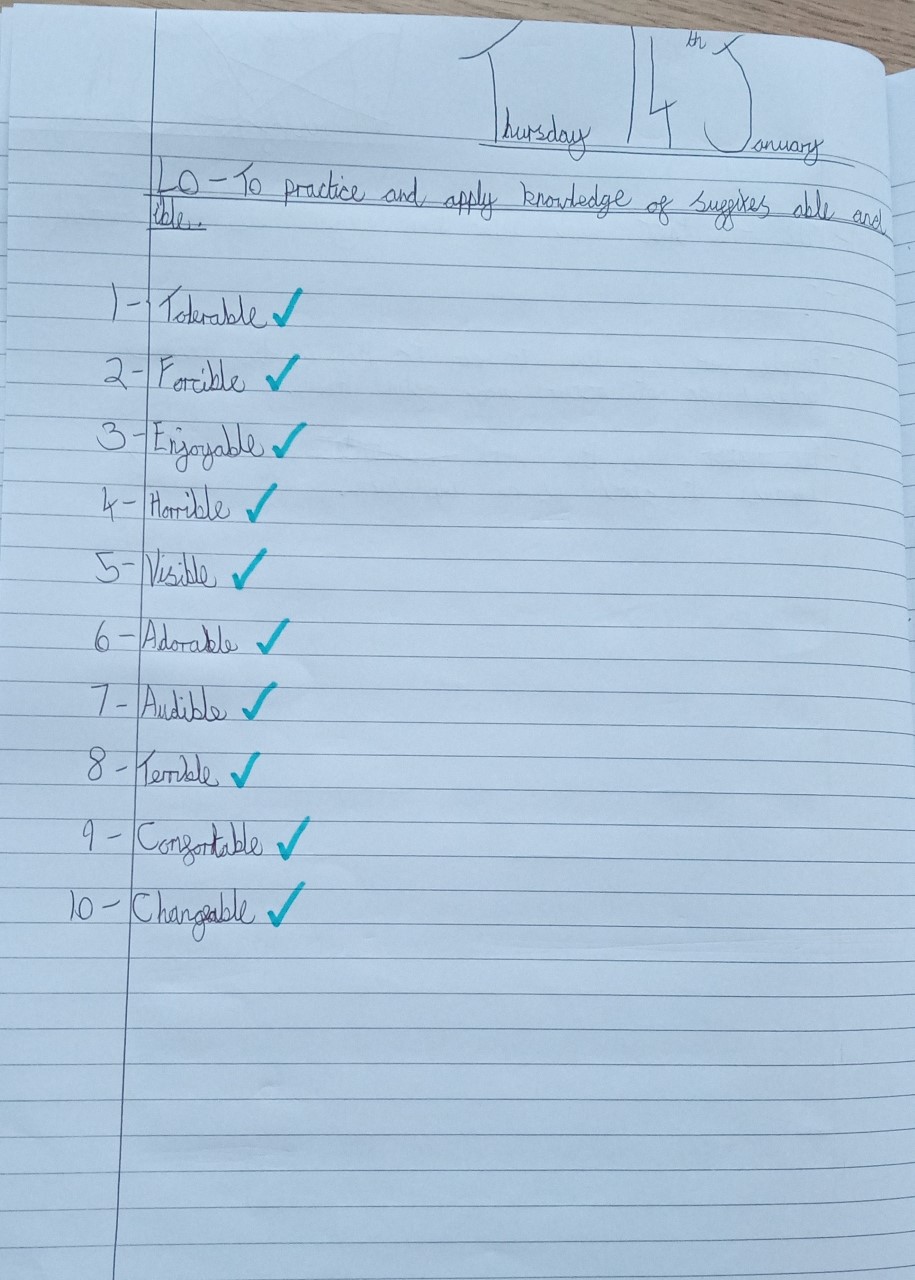 Thursday 14th January
LO - To practice and apply knowledge of suffixes able and
ible.
1 - Tolerable ✓
2 - Forcible ✓
3 - Enjoyable ✓
4 - Horrible ✓
5 - Visible ✓
6 - Adorable ✓
7 - Audible ✓
8 - Terrible ✓
9 - Comfortable ✓
10 - Changeable ✓